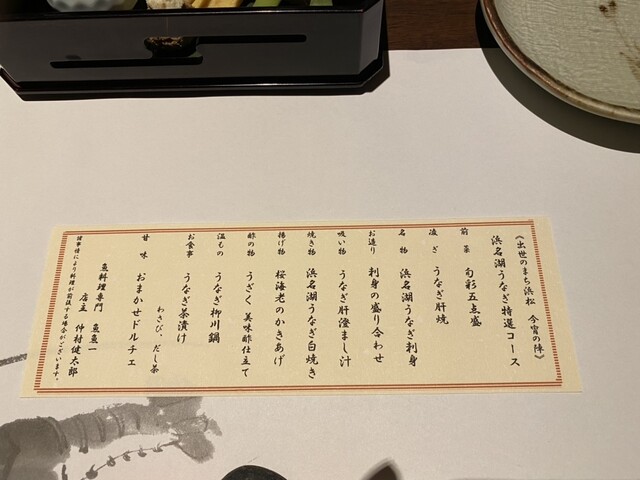 《出世のまち浜松 今宵の陣》
浜名湖うなぎ特選コース
前菜 旬彩五点盛
凌ぎ うなぎ肝焼
名物 浜名湖うなぎ刺身
お造り 刺身の盛り合わせ
吸い物 うなぎ肝澄まし汁
焼き物 浜名湖うなぎ白焼き
揚げ物 桜海老のかきあげ
酢の物 うざく 美味酢仕立て
温もの うなぎ柳川鍋
お食事 うなぎ茶漬け
わさび、だし茶
甘味 おまかせドルチェ
魚料理専門 魚魚一
店主 仲村健太郎
諸事情により料理が前後する場合がございます。